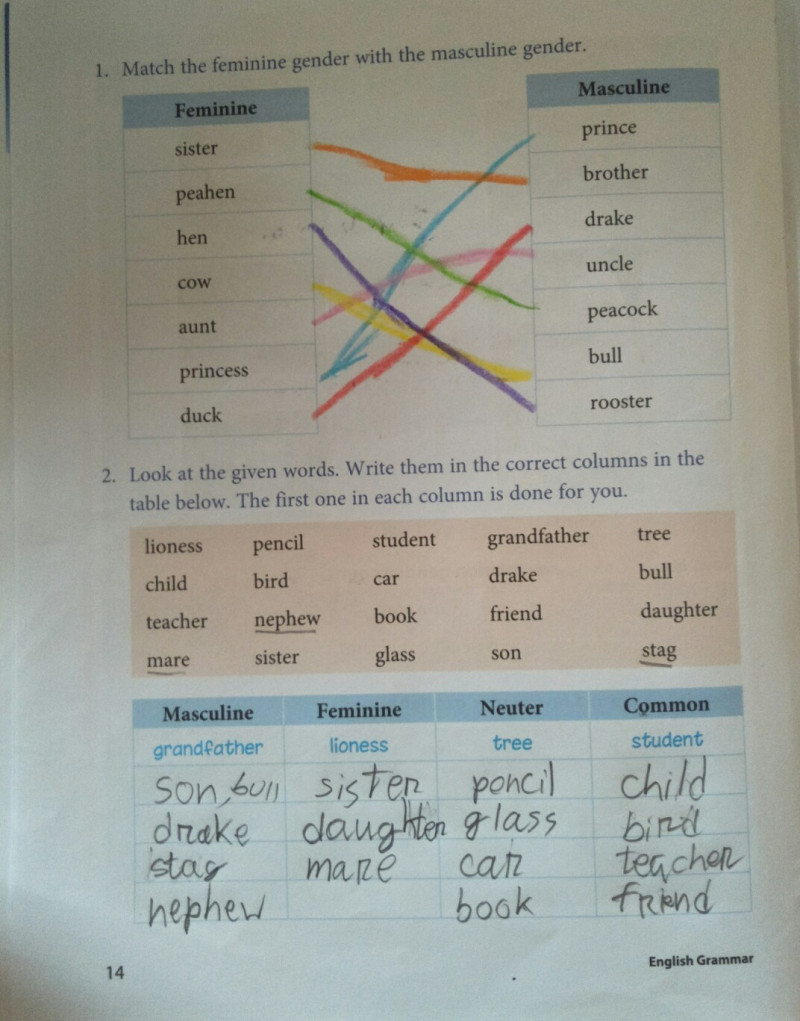 1. Match the feminine gender with the masculine gender.
Feminine Masculine
sister prince
peahen brother
hen drake
cow uncle
aunt peacock
princess bull
duck rooster
2. Look at the given words. Write them in the correct columns in the
table below. The first one in each column is done for you.
lioness pencil student grandfather tree
child bird car drake bull
teacher nephew book friend daughter
mare sister glass son stag
Masculine Feminine Neuter Common
grandfather lioness tree student
son, bull sister pencil child
drake daughter glass bird
stag mare car teacher
nephew book friend
14 English Grammar